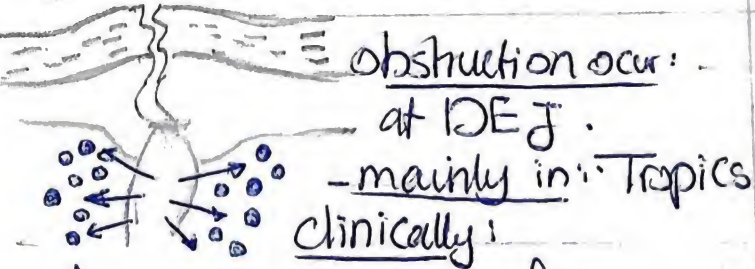 obstruction ocur:
at DEJ.
- mainly in: Tropics
clinically: